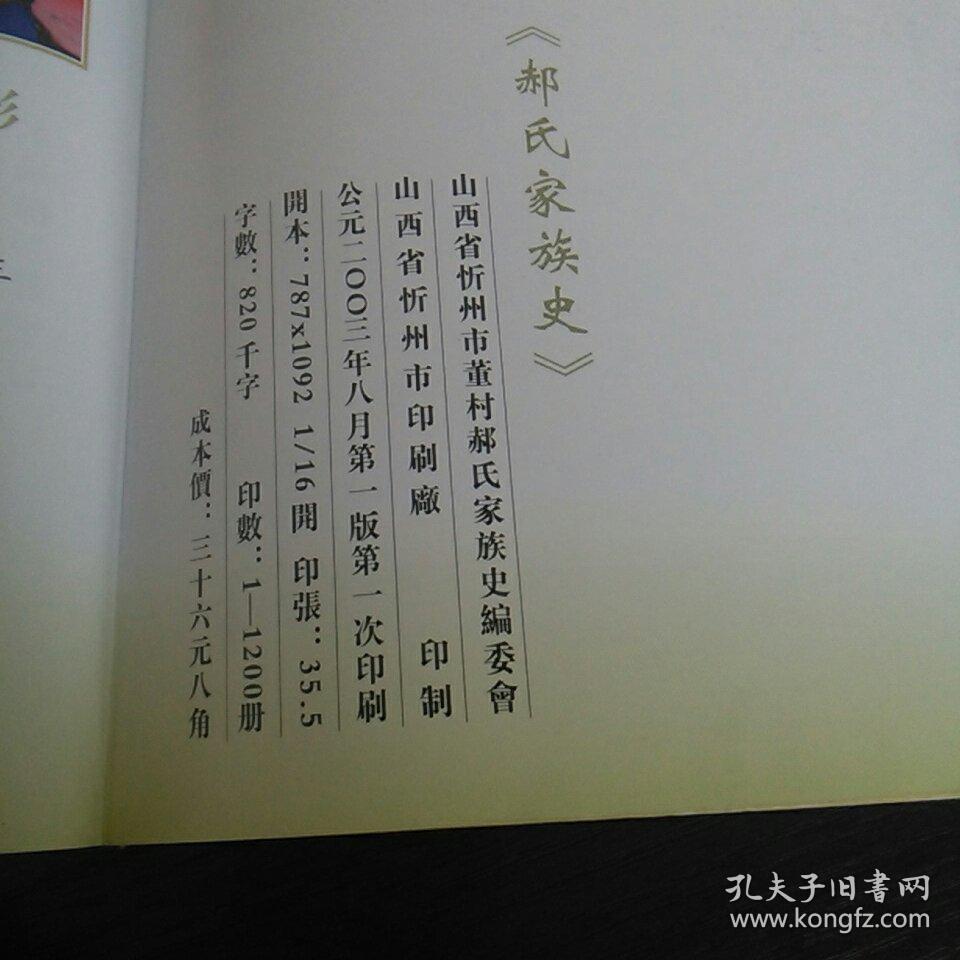 《郝氏家族史》
山西省忻州市董村郝氏家族史編委會
山西省忻州市印刷廠 印制
公元二〇〇三年八月第一版第一次印刷
開本：787x1092 1/16開 印張：35.5
字數：820千字 印數：1—1200册
成本價：三十六元八角
孔夫子旧書网
www.kongfz.com